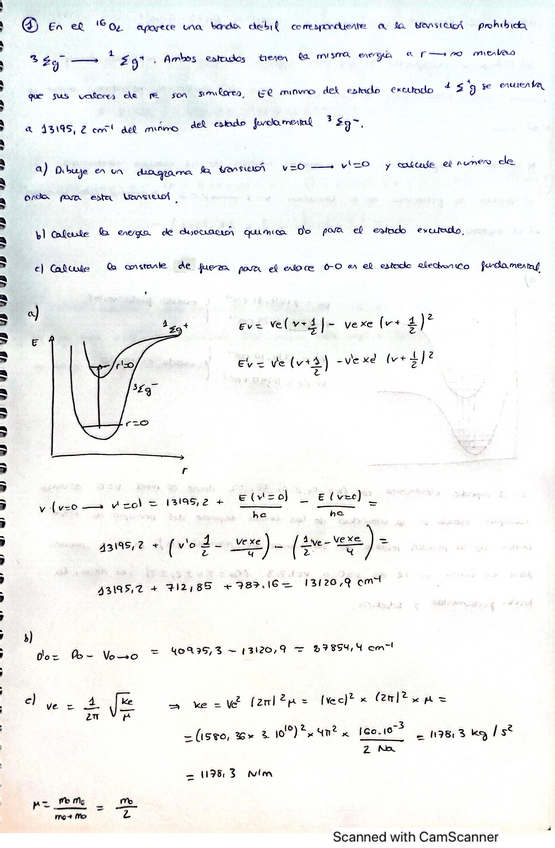 ① En el ¹⁶O₂ aparece una banda débil correspondiente a la transición prohibida
³Σg⁻ ⟶ ¹Σg⁺. Ambos estados tienen la misma energía a r ⟶ ∞ mientras
que sus valores de re son similares. El mínimo del estado excitado ¹Σg⁺ se encuentra
a 13195,2 cm⁻¹ del mínimo del estado fundamental ³Σg⁻.
a) Dibuje en un diagrama la transición v=0 ⟶ v'=0 y calcule el número de
onda para esta transición.
b) Calcule la energía de disociación química D'o para el estado excitado.
c) Calcule la constante de fuerza para el enlace O-O en el estado electrónico fundamental.
a)
E
¹Σg⁺
r'=0
³Σg⁻
r=0
r
Ev = ve(v+1/2) - vexe (v+1/2)²
E'v = v'e (v+1/2) - v'exe' (v+1/2)²
v (v=0 ⟶ v'=0) = 13195,2 + E(v'=0)/hc - E(v=0)/hc =
13195,2 + (v'o 1/2 - vexe/4) - (1/2 ve - vexe/4) =
13195,2 + 712,85 + 787.16 = 13120,9 cm⁻¹
b)
D'o = Do - Vo→o = 40975,3 - 13120,9 = 27854,4 cm⁻¹
c) ve = 1/2π √ke/μ ⇒ ke = Ve² (2π)² μ = (vec)² × (2π)² × μ =
= (1580,36 × 3.10¹⁰)² × 4π² × 160.10⁻³/2 Na = 1178,3 kg/s²
= 1178,3 N/m
μ = mo mo/mo+mo = mo/2
Scanned with CamScanner